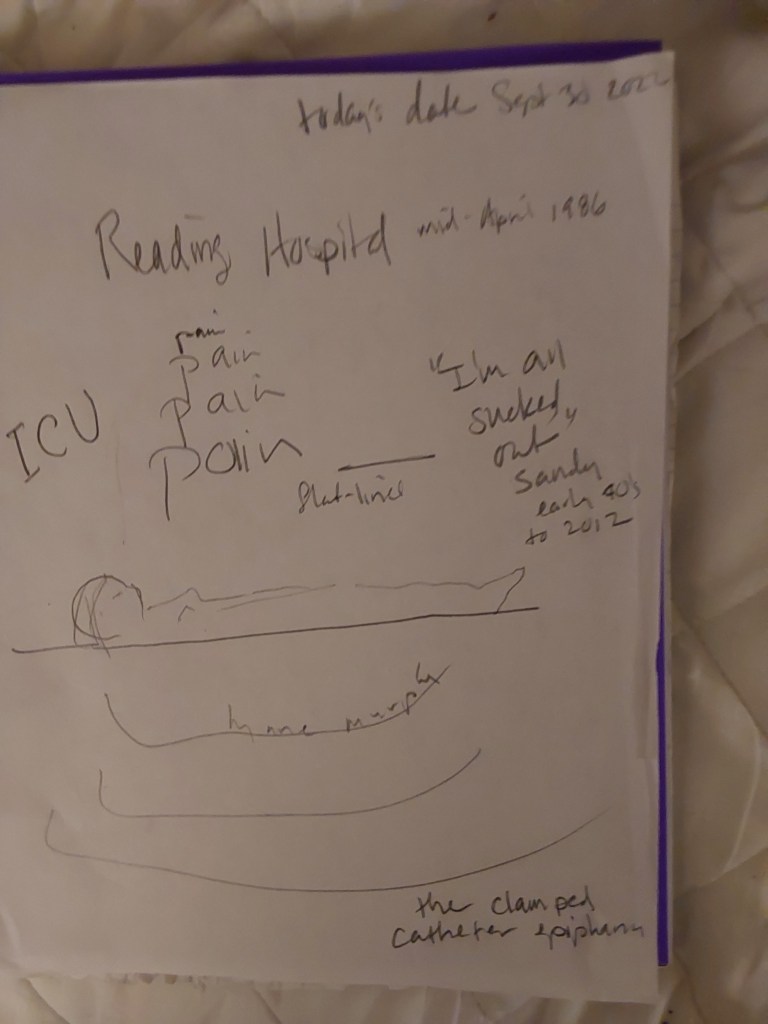 today's date Sept 30 2022
Reading Hospital mid-April 1986
pain
pain
pain
pain
ICU
flat-lines
"I'm all
sucked
out"
Sandy
early 40's
to 2012
lynne murphy
the clamped
catheter epiphany